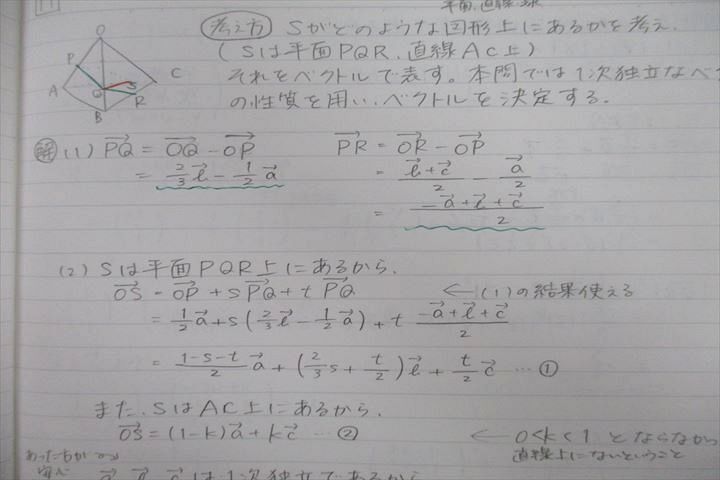 平面、直線、球
考え方 Sがどのような図形上にあるかを考え、
(Sは平面PQR、直線AC上)
それをベクトルで表す。本問では1次独立なベ
の性質を用い、ベクトルを決定する。
O
P
A
Q
S
C
R
B
解 (1) PQ→ = OQ→ - OP→
= 2/3 b→ - 1/2 a→
PR→ = OR→ - OP→
= (b→ + c→)/2 - a→/2
= (-a→ + b→ + c→)/2
(2) Sは平面PQR上にあるから、
OS→ = OP→ + sPQ→ + tPQ→ ← (1)の結果使える
= 1/2 a→ + s(2/3 b→ - 1/2 a→) + t (-a→ + b→ + c→)/2
= (1-s-t)/2 a→ + (2/3 s + t/2) b→ + t/2 c→ … ①
また、SはAC上にあるから、
OS→ = (1-k)a→ + kc→ … ② ← 0<k<1 とならなか
直線上にないということ
a→, b→, c→ は1次独立であるから